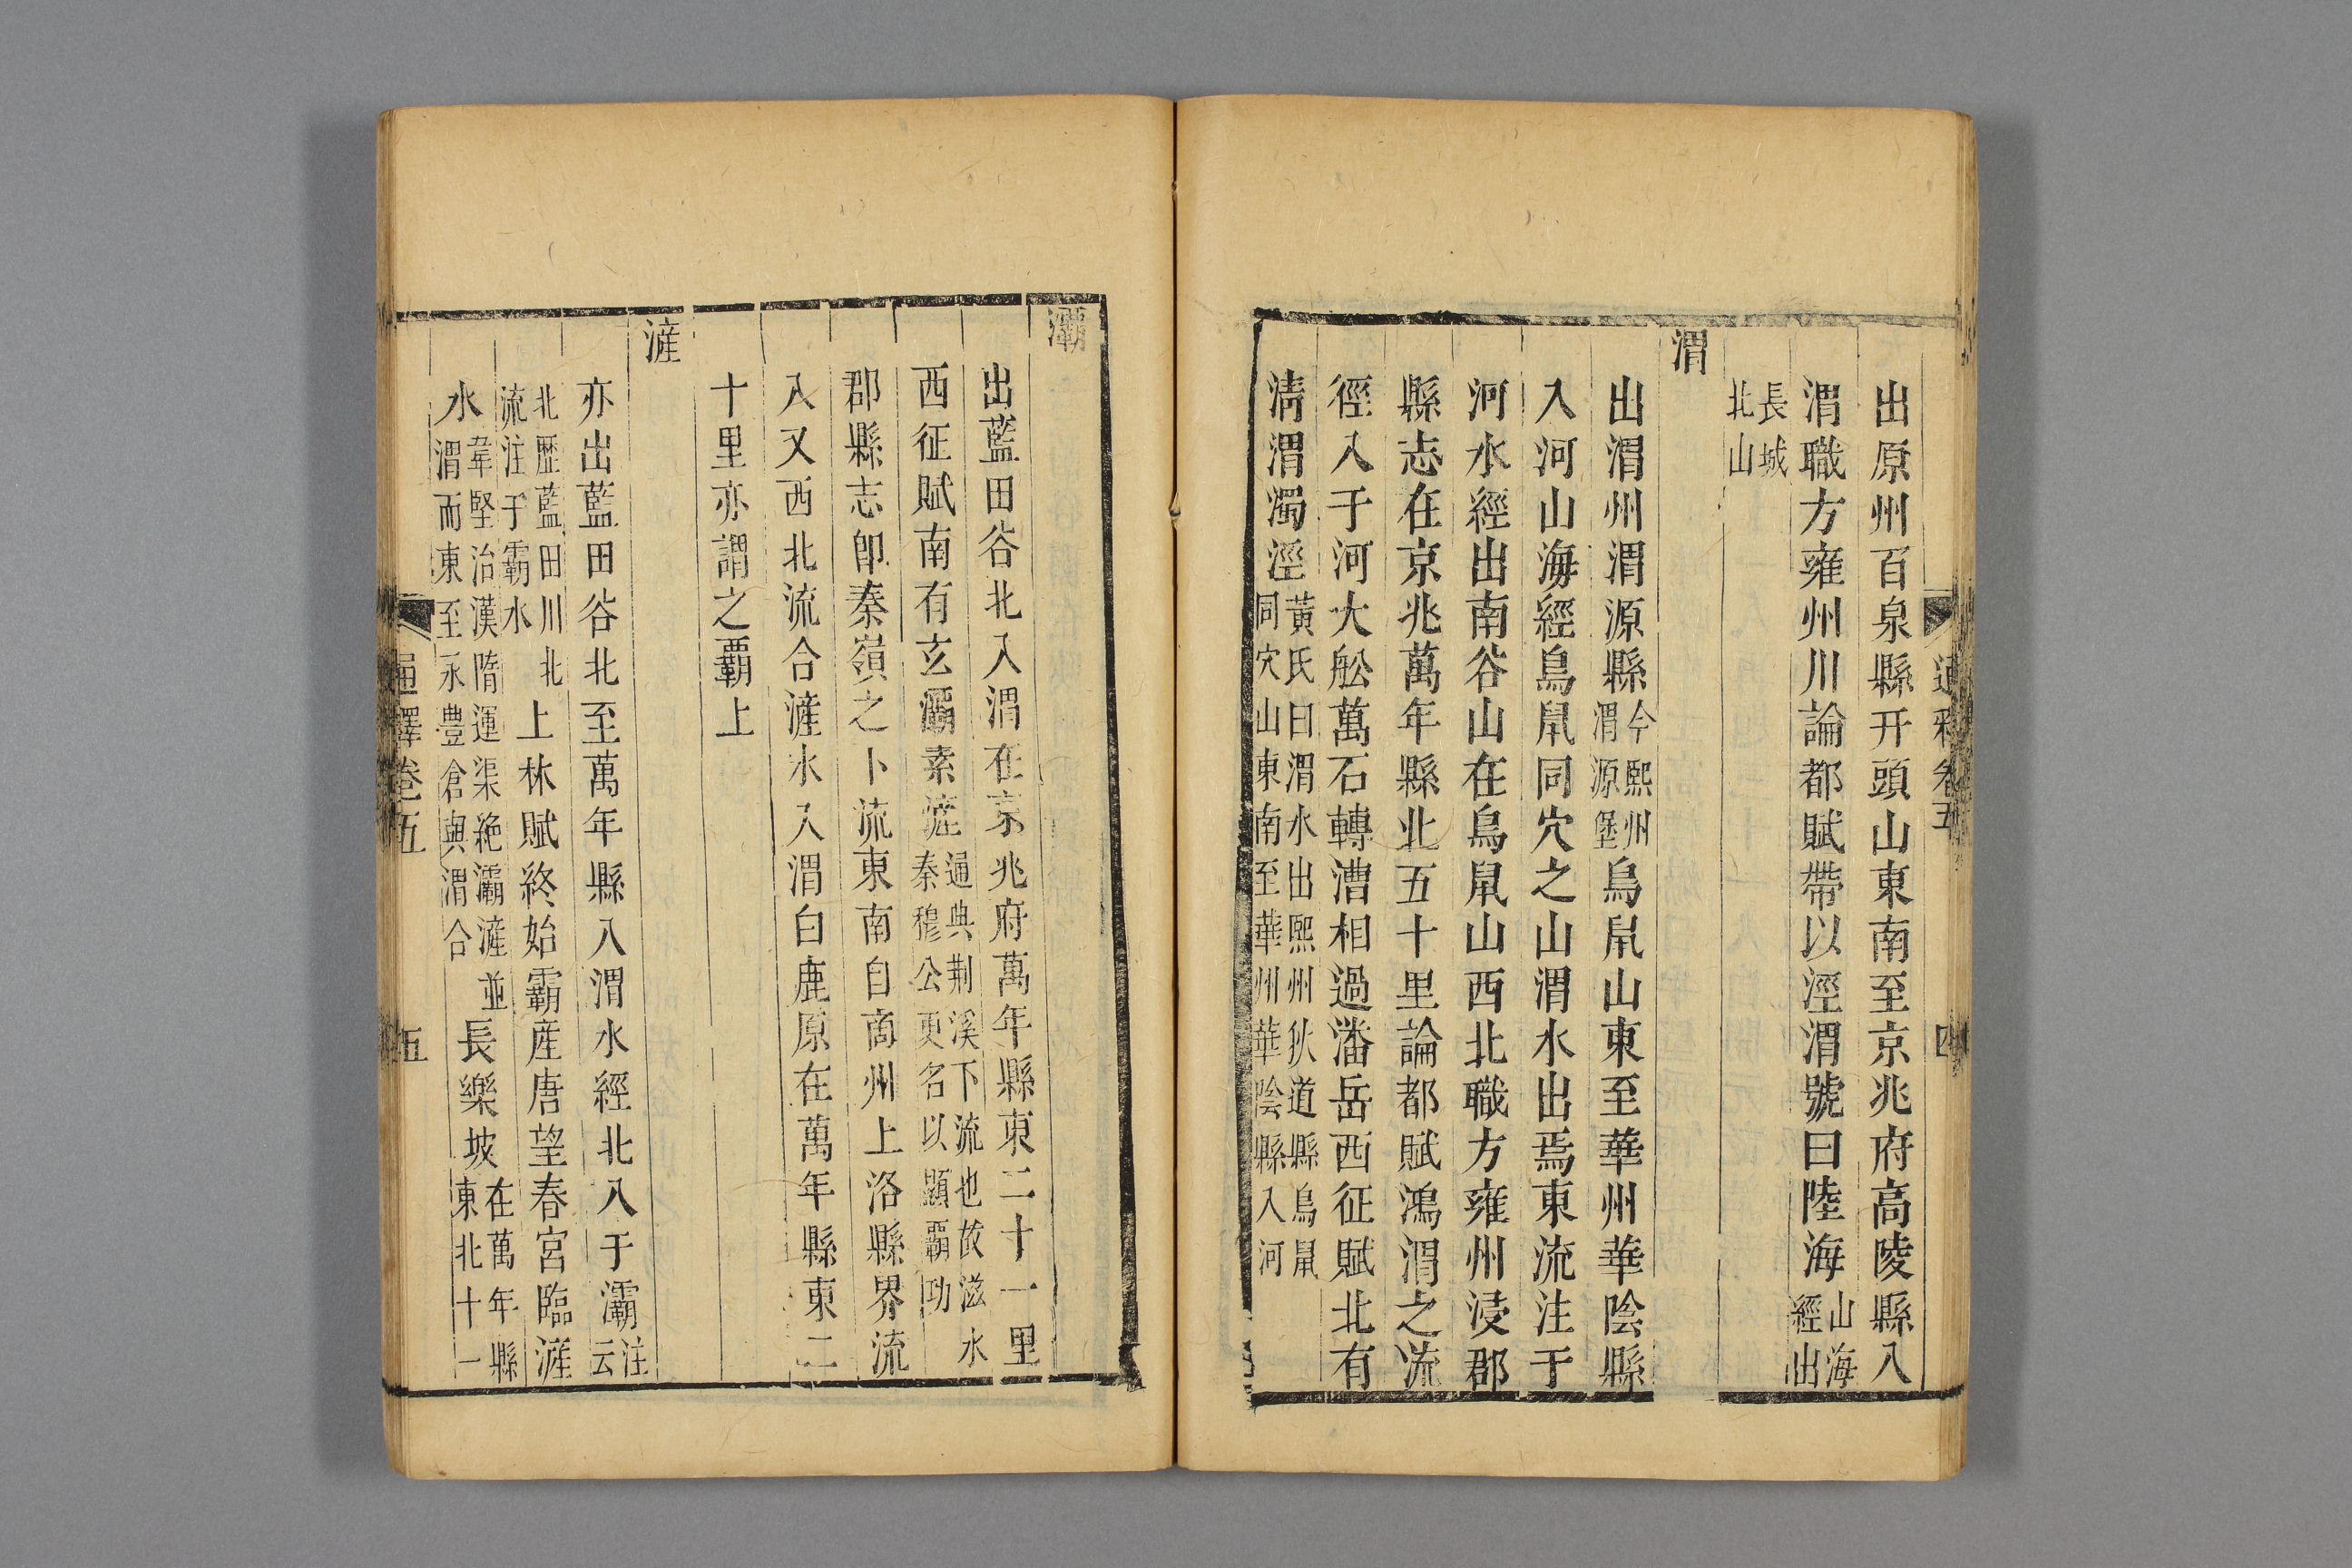 出原州百泉縣幵頭山東南至京兆府高陵縣入
渭職方雍州川論都賦帶以涇渭號曰陸海山海
經出
長城
北山
渭
出渭州渭源縣今熙州
渭源堡鳥䑕山東至華州華陰縣
入河山海經鳥䑕同穴之山渭水出焉東流注于
河水經出南谷山在鳥䑕山西北職方雍州浸郡
縣志在京兆萬年縣北五十里論都賦鴻渭之流
徑入于河大舩萬石轉漕相過潘岳西征賦北有
淸渭濁涇黃氏曰渭水出熙州狄道縣鳥䑕
同穴山東南至華州華陰縣入河
四
灞
出藍田谷北入渭在京兆府萬年縣東二十一里
西征賦南有玄灞素滻通典荆溪下流也故滋水
秦穆公更名以顯覇功
郡縣志卽秦嶺之卜流東南自商州上洛縣界流
入又西北流合滻水入渭白鹿原在萬年縣東二
十里亦謂之覇上
滻
亦出藍田谷北至萬年縣入渭水經北入于灞注
云
北歷藍田川北
流注于霸水上林賦終始霸産唐望春宮臨滻
水韋堅治漢隋運渠絶灞滻並
渭而東至永豊倉與渭合長樂坡在萬年縣
東北十一
通釋卷五
五